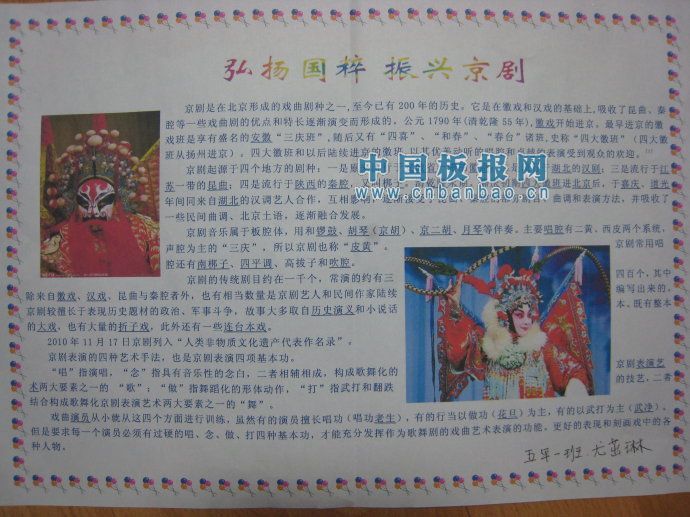 弘扬国粹 振兴京剧
京剧是在北京形成的戏曲剧种之一,至今已有200年的历史。它是在徽戏和汉戏的基础上,吸收了昆曲、秦
腔等一些戏曲剧的优点和特长逐渐演变而形成的。公元1790年(清乾隆55年),徽戏开始进京。最早进京的徽
戏班是享有盛名的安徽“三庆班”,随后又有“四喜”、“和春”、“春台”诸班,史称“四大徽班”(四大徽
班从扬州进京)。四大徽班和以后陆续进京的徽班,以其优美动听的唱腔和卓越的表演受到观众的欢迎。
京剧起源于四个地方的剧种:一是 湖北的汉剧;三是流行于江
苏一带的昆曲;四是流行于陕西的秦腔 班进北京后,于嘉庆、道光
年间同来自湖北的汉调艺人合作,互相影 曲调和表演方法,并吸收了
一些民间曲调、北京土语,逐渐融合发展。
京剧音乐属于板腔体,用和锣鼓、胡琴(京胡)、京二胡、月琴等伴奏。主要唱腔有二黄、西皮两个系统,
声腔为主的“三庆”,所以京剧也称“皮黄”。 京剧常用唱
腔还有南梆子、四平调、高拔子和吹腔。
京剧的传统剧目约在一千个,常演的约有三 四百个,其中
除来自徽戏、汉戏、昆曲与秦腔者外,也有相当数量是京剧艺人和民间作家陆续 编写出来的。
京剧较擅长于表现历史题材的政治、军事斗争,故事大多取自历史演义和小说话 本。既有整本
的大戏,也有大量的折子戏,此外还有一些连台本戏。
2010年11月17日京剧列入“人类非物质文化遗产代表作名录”。
京剧表演的四种艺术手法,也是京剧表演四项基本功。 京剧表演艺
“唱”指演唱,“念”指具有音乐性的念白,二者相辅相成,构成歌舞化的 的技艺,二者
术两大要素之一的“歌”;“做”指舞蹈化的形体动作,“打”指武打和翻跌
结合构成歌舞化京剧表演艺术两大要素之一的“舞”。
戏曲演员从小就从这四个方面进行训练,虽然有的演员擅长唱功(唱功老生),有的行当以做功(花旦)为主,有的以武打为主(武净)。
但是要求每一个演员必须有过硬的唱、念、做、打四种基本功,才能充分发挥作为歌舞剧的戏曲艺术表演的功能。更好的表现和刻画戏中的各
种人物。
五年一班
中国板报网
www.cnbanbao.cn